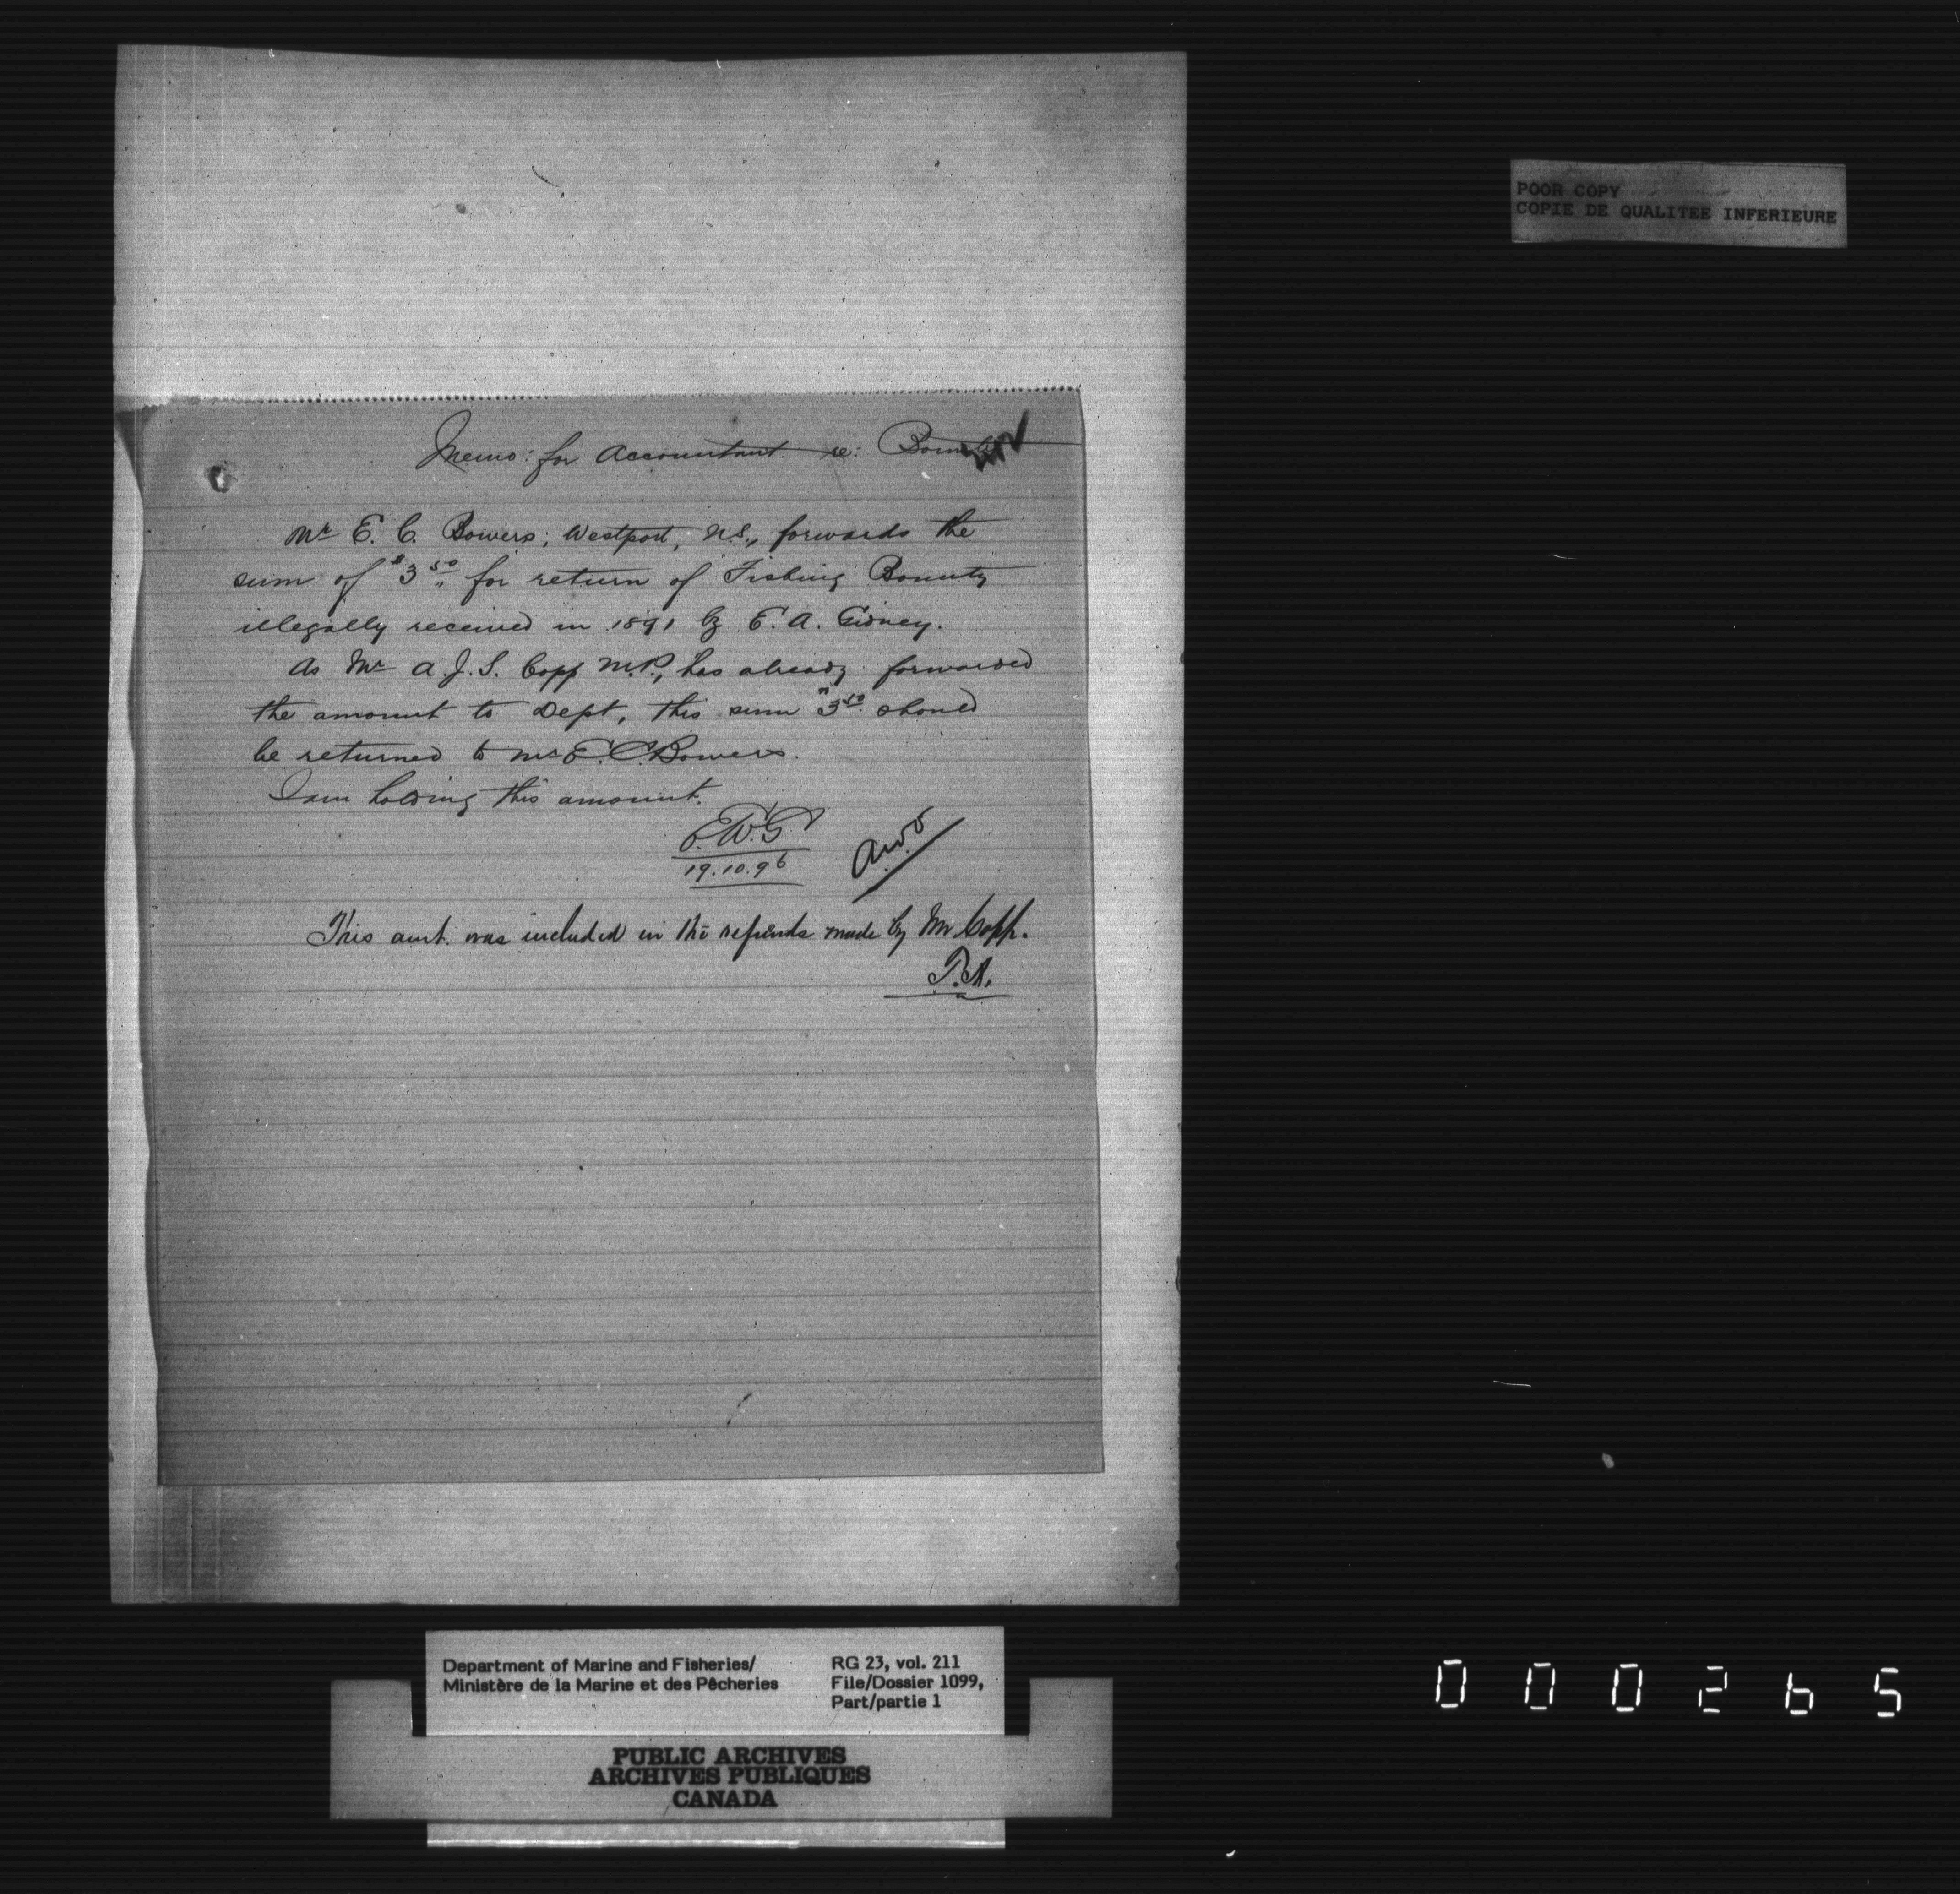 POOR COPY
COPIE DE QUALITEE INFERIEURE
Memo: for Accountant re: Bounty
Mr E. C. Bowers, Westport, N.S., forwards the
sum of $3.50 for return of Fishing Bounty
illegally received in 1891 by E. A. Gidney.
As Mr A. J. S. Copp M.P., has already forwarded
the amount to Dept, this sum $3.50 should
be returned to Mr E. C. Bowers.
I am holding this amount.
E.W.G
19.10.96
This amt. was included in the refunds made by Mr Copp.
Department of Marine and Fisheries/
Ministère de la Marine et des Pêcheries
RG 23, vol. 211
File/Dossier 1099,
Part/partie 1
PUBLIC ARCHIVES
ARCHIVES PUBLIQUES
CANADA
000265